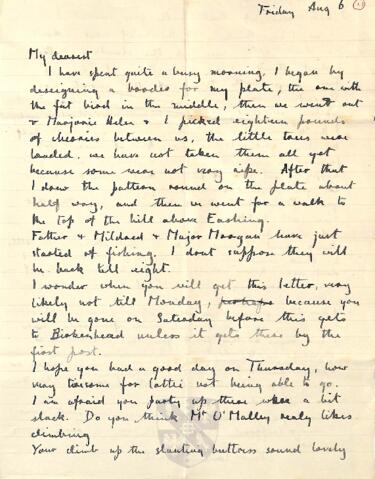 Friday Aug 6 (1)
My dearest
I have spent quite a busy morning. I began by
designing a boarder for my plate, the one with
the fat bird in the middle, then we went out
& Marjorie Helen & I picked eighteen pounds
of cherries between us, the little trees were
loaded. we have not taken them all yet
because some were not very ripe. After that
I drew the pattern round on the plate about
half way, and then we went for a walk to
the top of the hill above Eashing.
Father & Mildred & Major Morgan have just
started off fishing. I dont suppose they will
be back till eight.
I wonder when you will get this letter, very
likely not till Monday, perhaps because you
will be gone on Saturday before this gets
to Birkenhead unless it gets there by the
first post.
I hope you had a good day on Thursday, how
very tiresome for not being able to go.
I am afraid you party up there were a bit
slack. Do you think Mr O'Malley realy likes
climbing
Your climb up the slanting buttress sound lovely